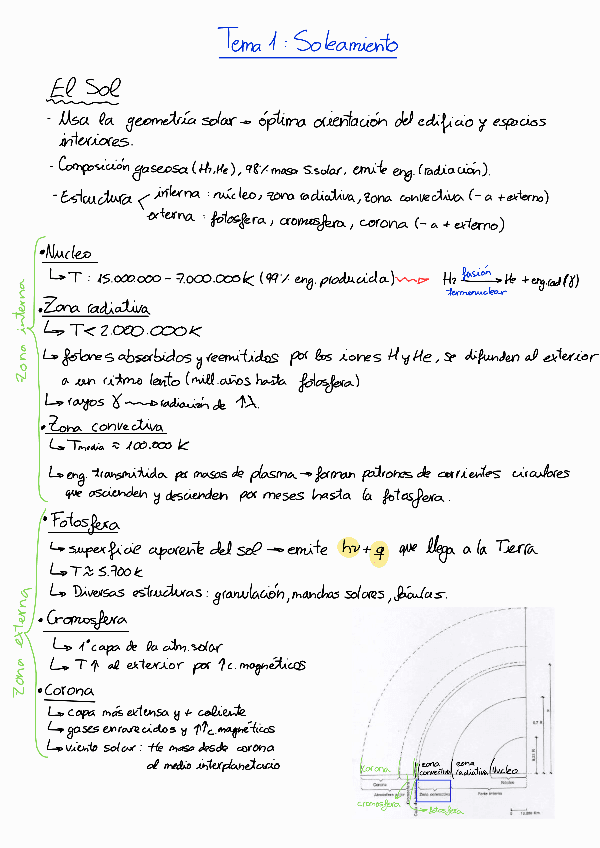 Tema 1: Soleamiento
El Sol
- Usa la geometría solar → óptima orientación del edificio y espacios
interiores.
- Composición gaseosa (H, He), 98% masa S.solar, emite eng. (radiación).
- Estructura < interna: núcleo, zona radiativa, zona convectiva (- a + externo)
externa: fotosfera, cromosfera, corona (- a + externo)
Zona interna
• Nucleo
↳ T: 15.000.000 - 7.000.000K (99% eng. producida) H2 fusión termonuclear → He + eng.rad (γ)
• Zona radiativa
↳ T < 2.000.000K
↳ fotones absorbidos y reemitidos por los iones H y He, se difunden al exterior
a un ritmo lento (mill. años hasta fotosfera)
↳ rayos γ → radiación de ↑λ.
• Zona convectiva
↳ Tmedia ≈ 100.000 K
↳ eng. transmitida por masas de plasma → forman patrones de corrientes circulares
que ascienden y descienden por meses hasta la fotosfera.
Zona externa
• Fotosfera
↳ superficie aparente del sol → emite hν + q que llega a la Tierra
↳ T ≈ 5.700K
↳ Diversas estructuras: granulación, manchas solares, fáculas.
• Cromosfera
↳ 1ª capa de la atm. solar
↳ T ↑ al exterior por ↑c. magnéticos
• Corona
↳ capa más extensa y + caliente
↳ gases enrarecidos y ↑↑c. magnéticos
↳ viento solar: He masa desde corona
al medio interplanetario
corona
zona convectiva
zona radiativa
Nucleo
Corona
Núcleo
Zona convectiva
Parte interna
cromosfera
fotosfera